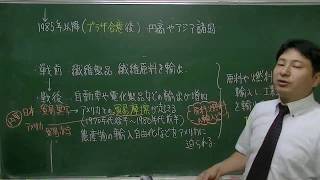 1985年以降(プラザ合意後) 円高やアジア諸国
戦前 繊維製品 繊維原料を輸入
戦後 自動車や電化製品などの輸出が増加
日本 貿易黒字 アメリカとの貿易摩擦が起きる
アメリカ 貿易赤字 (1970年代後半~1980年代前半)
農産物の輸入自由化などをアメリカに
迫られる
原料や燃料
輸入し、工業
を輸